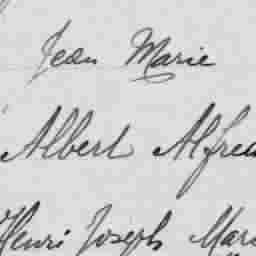 Jean Marie
Albert Alfred
Henri Joseph Mari